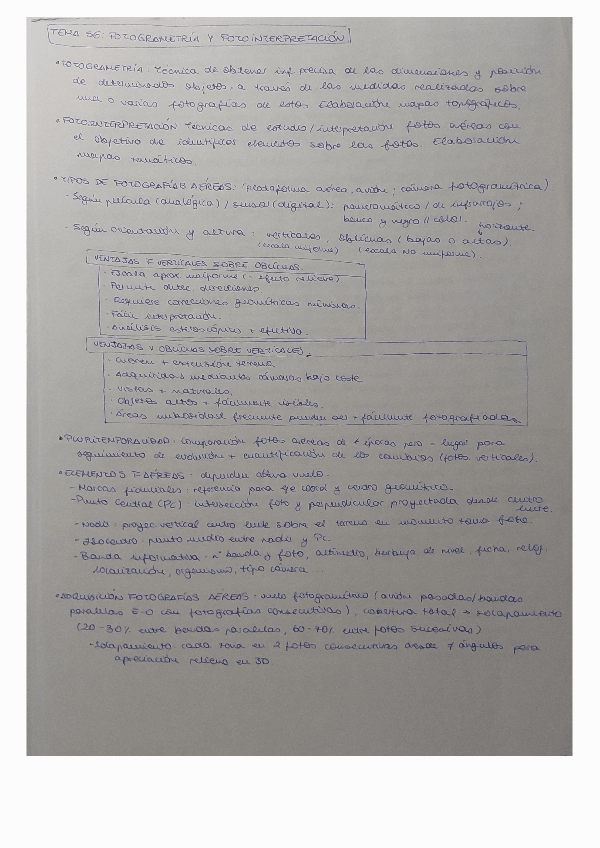 TEMA 56: FOTOGRAMETRÍA Y FOTOINTERPRETACIÓN
• FOTOGRAMETRÍA: Técnica de obtener inf precisa de las dimensiones y posición
de determinados objetos a través de las medidas realizadas sobre
una o varias fotografías de estos. Elaboración mapas topográficos.
• FOTOINTERPRETACIÓN Técnicas de estudio/interpretación fotos aéreas con
el objetivo de identificar elementos sobre las fotos. Elaboración
mapas temáticos.
• TIPOS DE FOTOGRAFÍAS AÉREAS: (plataforma aérea, avión; cámara fotogramétrica)
- Según película (analógica) / sensor (digital): pancromático / de infrarrojos;
blanco y negro // color.
- Según orientación y altura: verticales oblicuas (bajas o altas)
horizonte.
(escala uniforme) (escala NO uniforme).
VENTAJAS F VERTICALES SOBRE OBLICUAS.
· Escala aprox uniforme (- efecto relieve)
· Permite direcciones
· Requiere correcciones geométricas mínimas.
· Fácil interpretación.
· Análisis estereoscópico + efectivo.
VENTAJAS OBLICUAS SOBRE VERTICALES
· Cubren + extensión terreno.
· Adquiridas mediante cámaras bajo coste
· Vistas + naturales.
· Objetos altos + fácilmente visibles.
· Áreas nubosidad frecuente pueden ser + fácilmente fotografiadas.
• PLURITEMPORALIDAD: comparación fotos aéreas de ≠ épocas para = lugar para
seguimiento de evolución + cuantificación de los cambios (fotos verticales).
• ELEMENTOS F AÉREAS: dependen altura vuelo.
- Marcas fiduciales: referencia para eje coord y centro geométrico.
- Punto central (Pc) intersección foto y perpendicular proyectada desde centro
lente.
- Nadir: proyec vertical centro lente sobre el terreno en momento toma foto.
- Isocentro: punto medio entre nadir y Pc.
- Banda informativa: nº banda y foto, altímetro, burbuja de nivel, fecha, reloj,
localización, organismo, tipo cámara ...
• ADQUISICIÓN FOTOGRAFÍAS AÉREAS: vuelo fotogramétrico (avión pasadas/bandas
paralelas E-O con fotografías consecutivas), cobertura total → solapamiento
(20-30% entre bandas paralelas, 60-70% entre fotos sucesivas)
- Solapamiento: cada zona en 2 fotos consecutivas desde ≠ ángulos para
apreciación relieve en 3D.